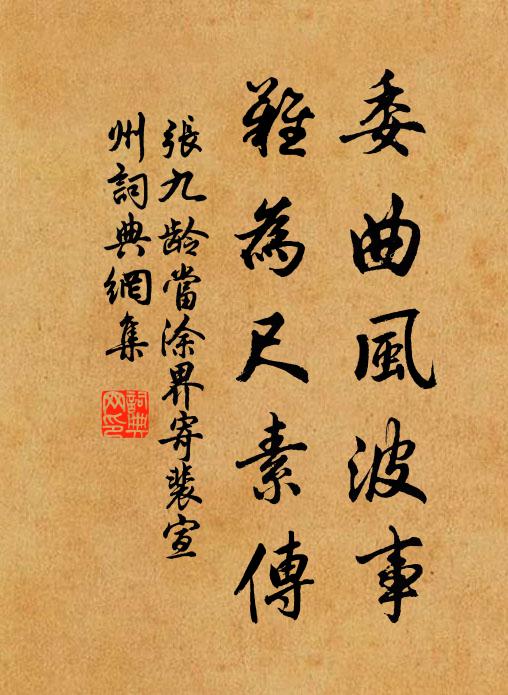 委曲風波事
難為尺素傳
張九龄當涂界寄裴宣
州詞典網集
詞典
网印